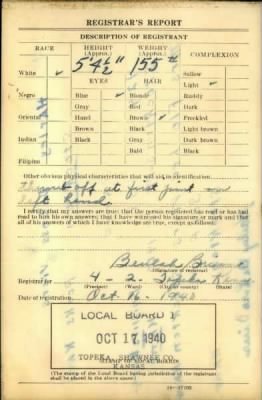 REGISTRAR'S REPORT
DESCRIPTION OF REGISTRANT
RACE HEIGHT (Approx.) WEIGHT (Approx.) COMPLEXION
5' 4½" 155
White ✓ EYES HAIR Sallow
Light ✓
Negro Blue ✓ Blonde Ruddy
Gray Red Dark
Oriental Hazel Brown ✓ Freckled
Brown Black Light brown
Indian Black Gray Dark brown
Bald Black
Filipino
Other obvious physical characteristics that will aid in identification
Thumb off at first joint on
left hand
I certify that my answers are true; that the person registered has read or has had
read to him his own answers; that I have witnessed his signature or mark and that
all of his answers of which I have knowledge are true, except as follows:
Beulah
(Signature of registrar)
Registrar for 4 - 2 - Topeka
(Precinct) (Ward) (City or county) (State)
Date of registration Oct. 16 - 1940
LOCAL BOARD 1
OCT 17 1940
TOPEKA, SHAWNEE CO.
KANSAS
(STAMP OF LOCAL BOARD)
(The stamp of the Local Board having jurisdiction of the registrant
shall be placed in the above space.)